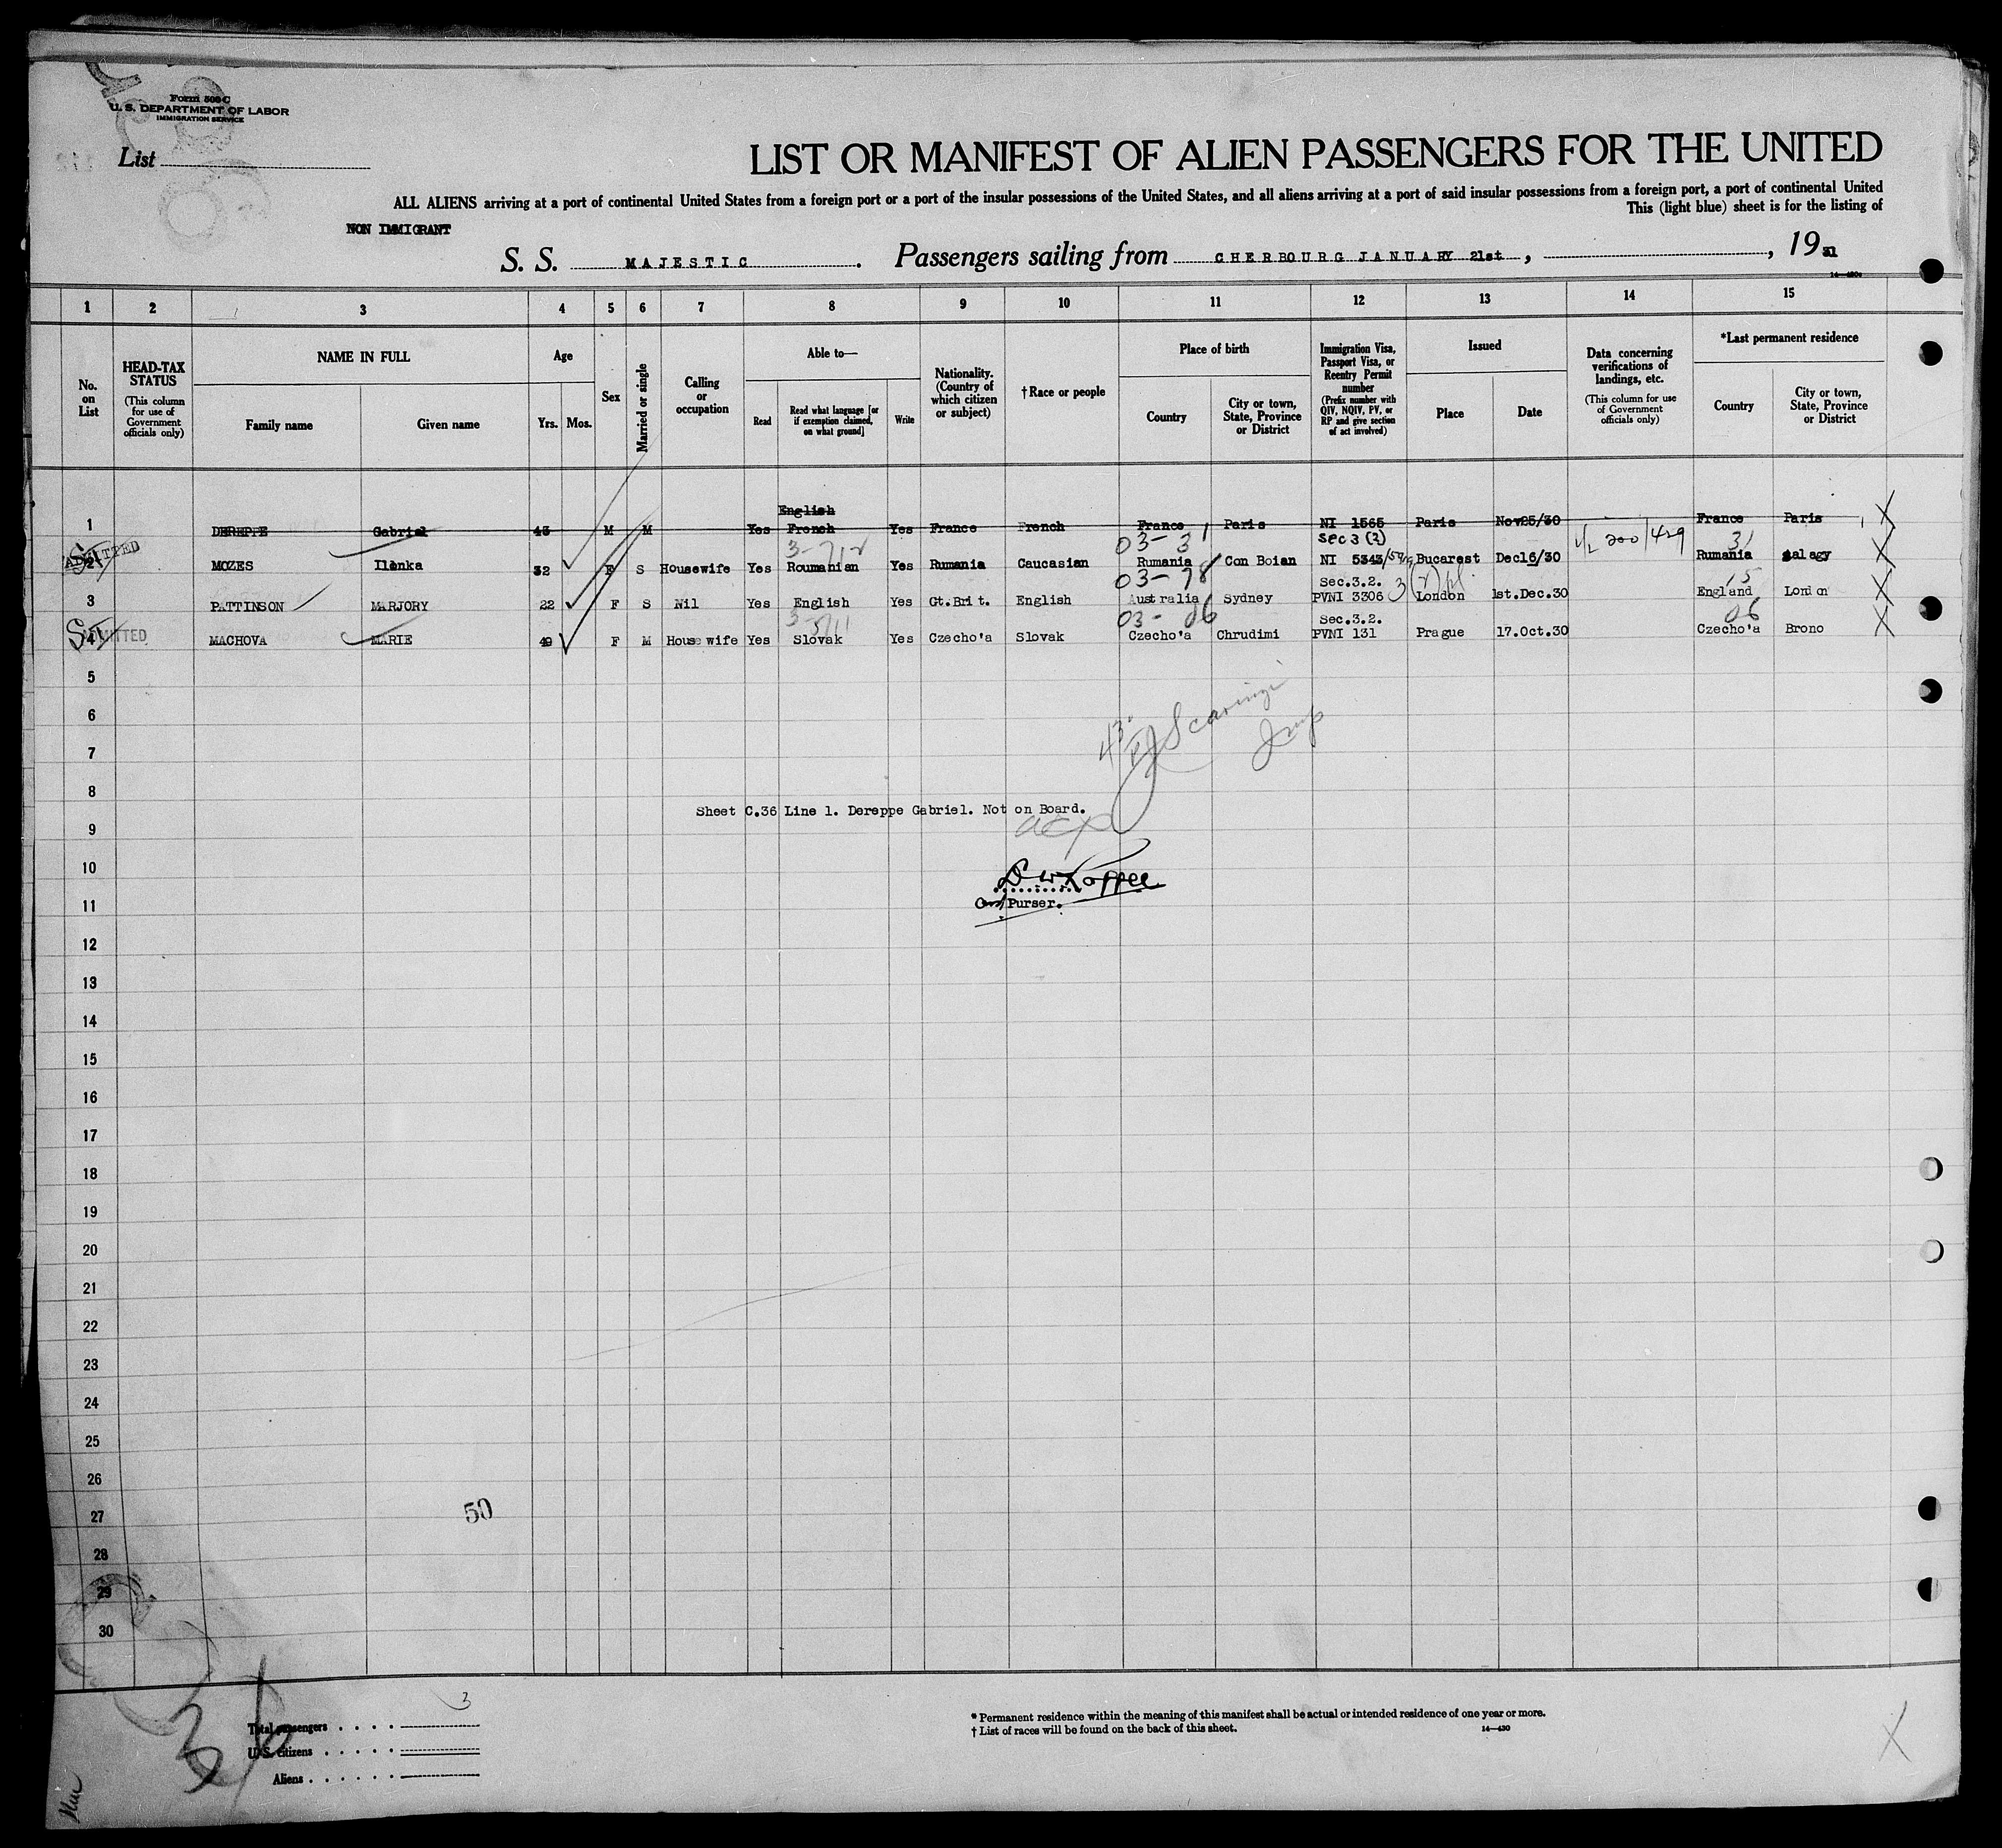 Form 500-C
U. S. DEPARTMENT OF LABOR
IMMIGRATION SERVICE
List
LIST OR MANIFEST OF ALIEN PASSENGERS FOR THE UNITED
ALL ALIENS arriving at a port of continental United States from a foreign port or a port of the insular possessions of the United States, and all aliens arriving at a port of said insular possessions from a foreign port, a port of continental United
This (light blue) sheet is for the listing of
NON IMMIGRANT
S. S. MAJESTIC. Passengers sailing from CHERBOURG JANUARY 21st, , 1931
1 2 3 4 5 6 7 8 9 10 11 12 13 14 15
No. on List
HEAD-TAX STATUS (This column for use of Government officials only)
NAME IN FULL Family name Given name
Age Yrs. Mos.
Sex
Married or single
Calling or occupation
Able to— Read Read what language [or if exemption claimed, on what ground] Write
Nationality. (Country of which citizen or subject)
†Race or people
Place of birth Country City or town, State, Province or District
Immigration Visa, Passport Visa, or Reentry Permit number (Prefix number with QIV, NQIV, PV, or RP and give section of act involved)
Issued Place Date
Data concerning verifications of landings, etc. (This column for use of Government officials only)
*Last permanent residence Country City or town, State, Province or District
English
1 DEREPPE Gabriel 43 M M Yes French Yes France French France Paris NI 1565 Paris Nov25/30 France Paris X
ADMITTED 3-712 03-31 Sec 3 (2) 31
2 MOZES Ilonka 32 F S Housewife Yes Roumanian Yes Rumania Caucasian Rumania Con Boian NI 5343 Bucarest Dec16/30 Rumania Galagy X
03-78 Sec.3.2. 15
3 PATTINSON MARJORY 22 F S Nil Yes English Yes Gt.Brit. English Australia Sydney PVNI 3306 London 1st.Dec.30 England London X
ADMITTED 03-06 Sec.3.2. 06
4 MACHOVA MARIE 49 F M Housewife Yes Slovak Yes Czecho'a Slovak Czecho'a Chrudimi PVNI 131 Prague 17.Oct.30 Czecho'a Brono X
5
6
7
8
Sheet C.36 Line 1. Dereppe Gabriel. Not on Board.
9
10
11
Purser.
12
13
14
15
16
17
18
19
20
21
22
23
24
25
26
27
50
28
29
30
36
3
Total passengers
U.S. citizens
Aliens
* Permanent residence within the meaning of this manifest shall be actual or intended residence of one year or more.
† List of races will be found on the back of this sheet. 14—430
X